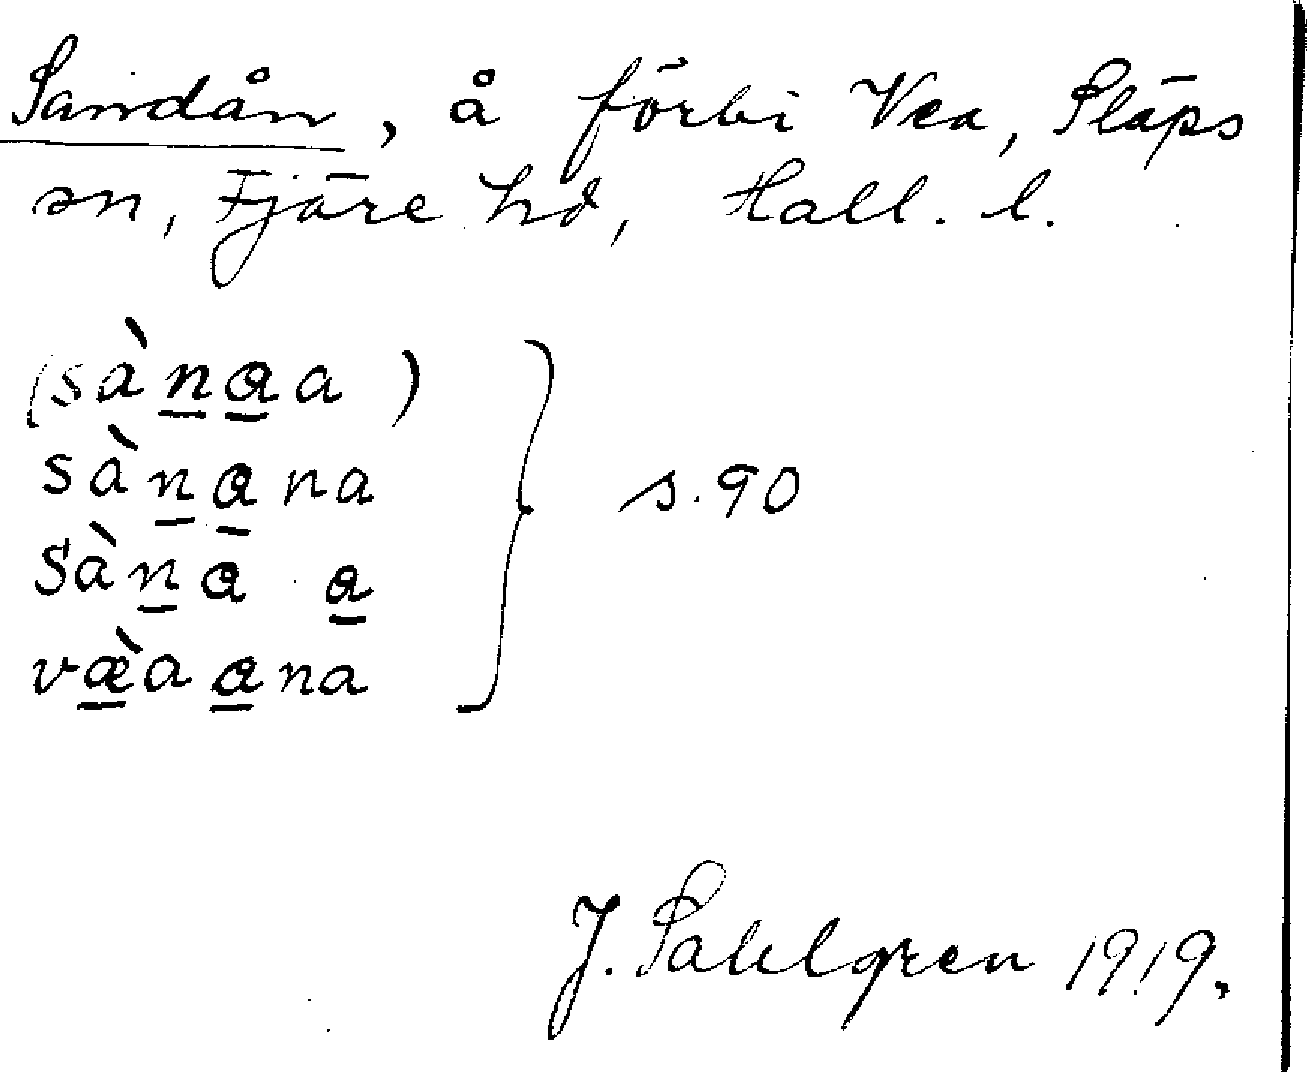 Sandån, å förbi Vea, Släps
sn, Fjäre hd, Hall. l.
(sànaa)
sànana
Sàna a
vὰa ana
} s. 90
J. Sahlgren 1919.